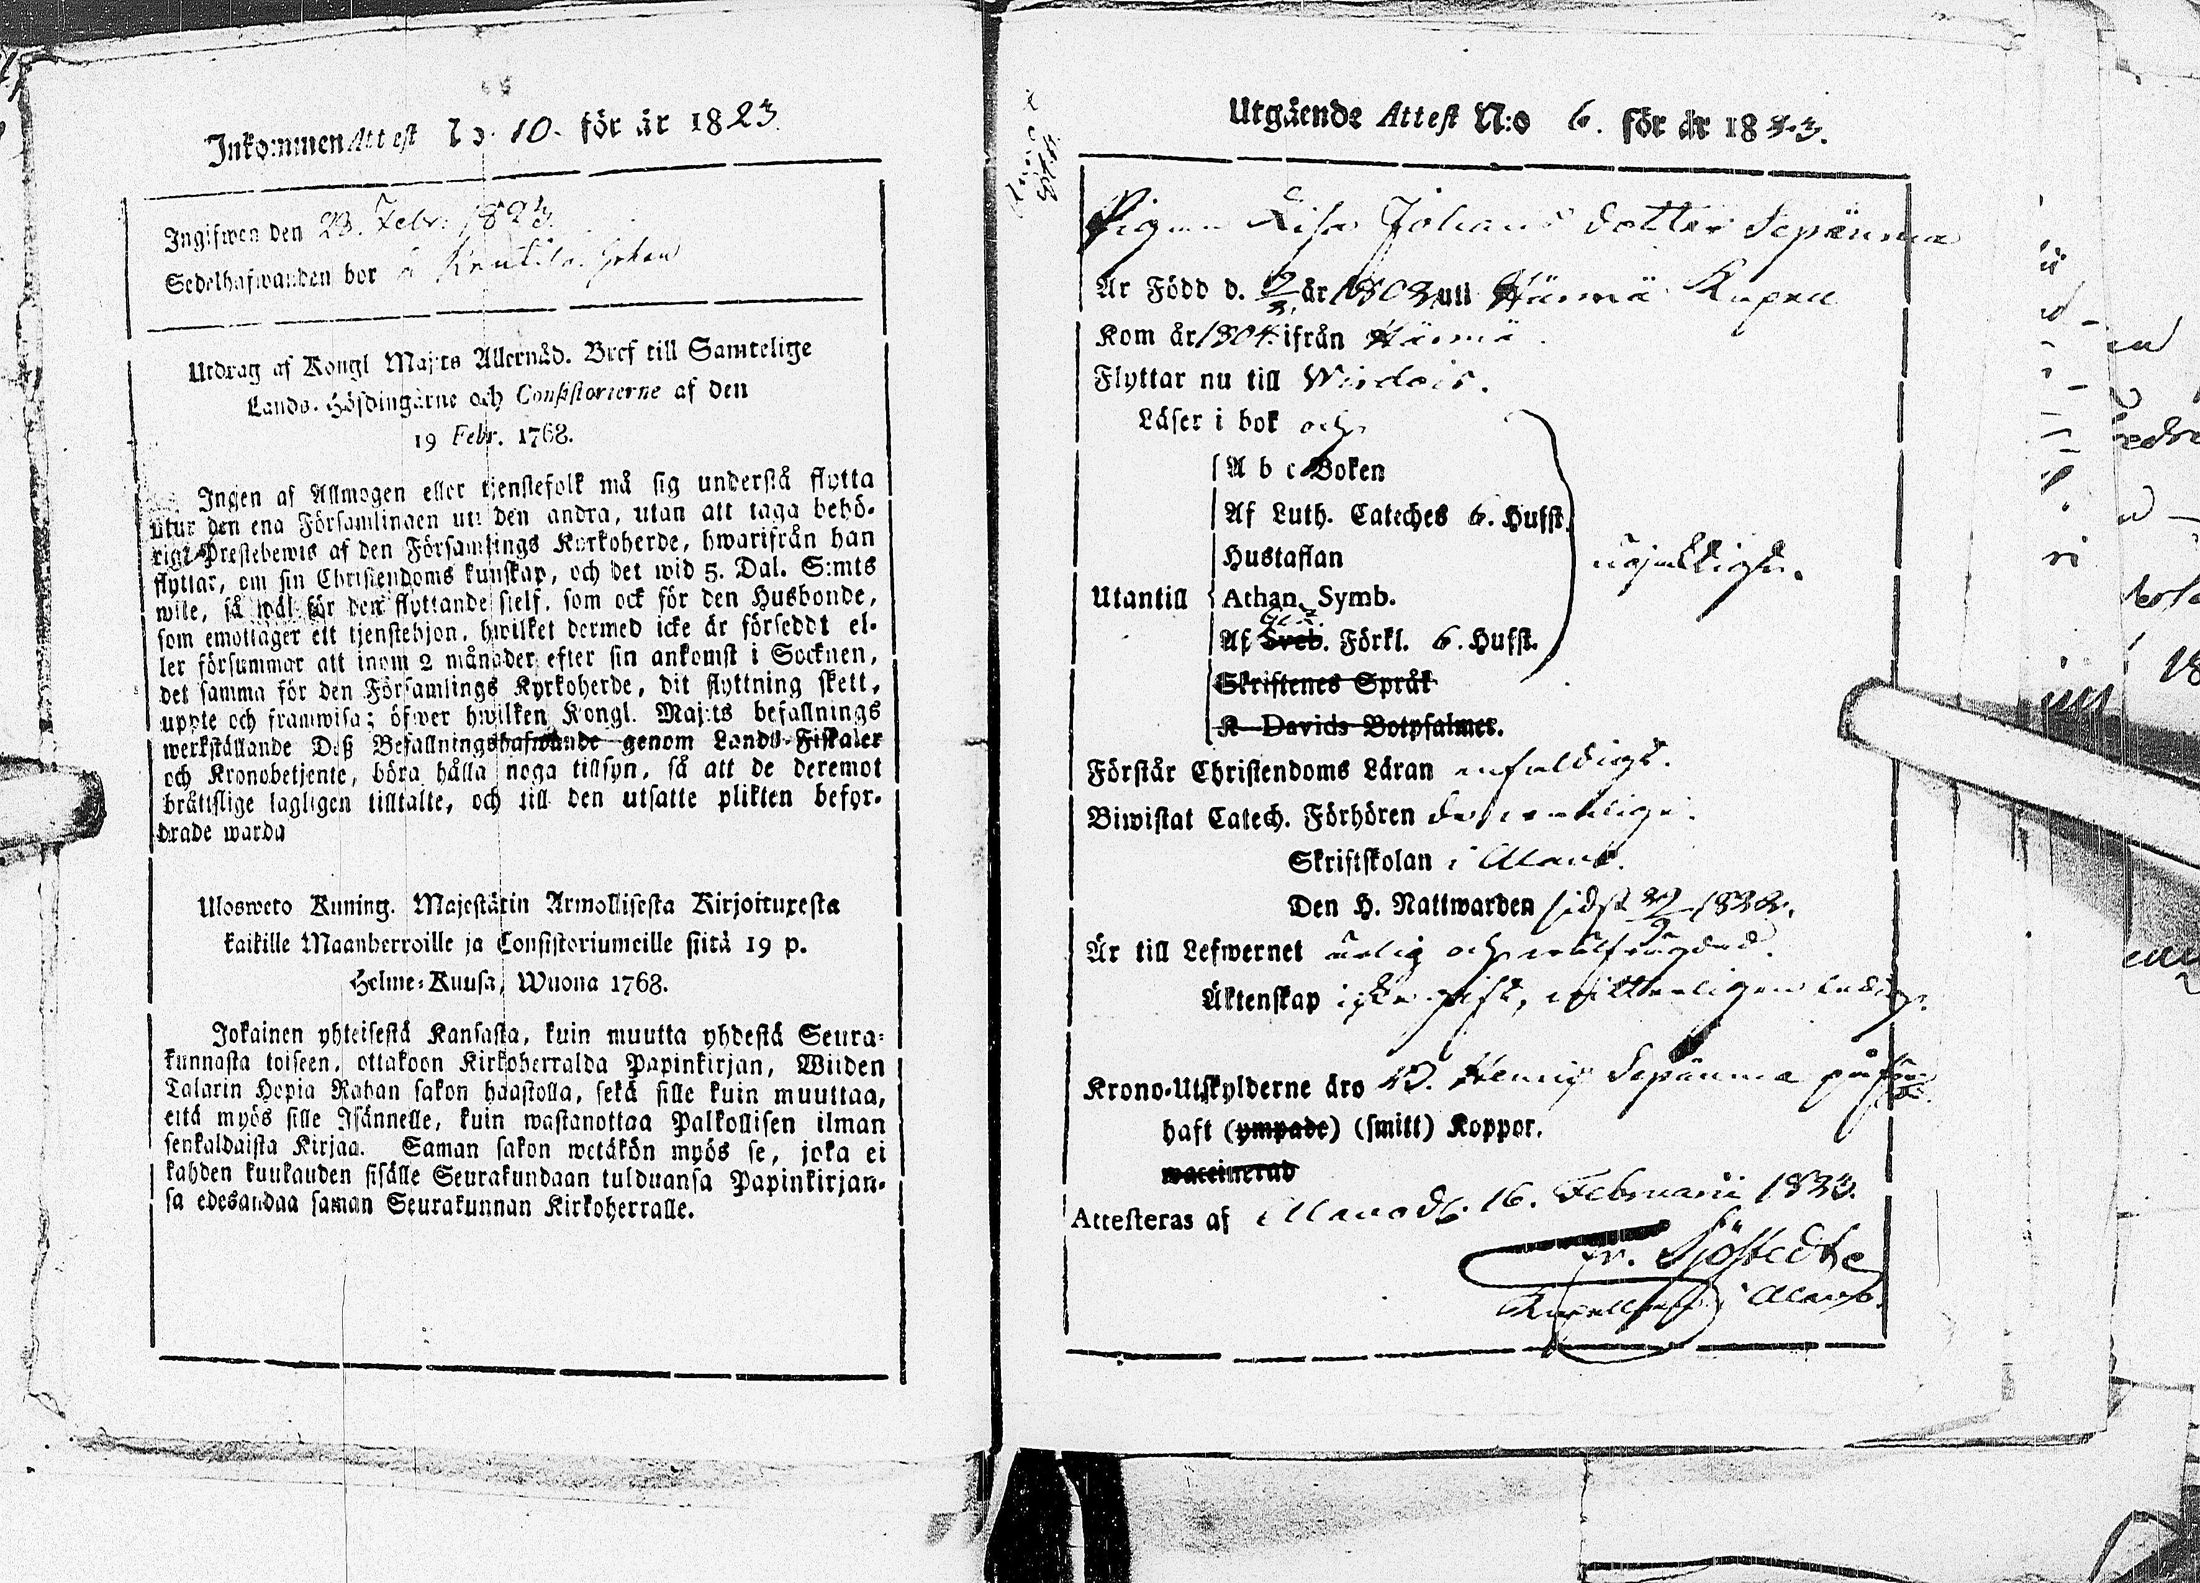 Inkommen Attest No. 10. för år 1823.
Ingifwen den 23. Febr. 1823.
Sedelhafwanden bor å
Utdrag af Kongl Maj:ts Allernåd. Bref till Samtelige
Lands-Höfdingarne och Consistorierne af den
19 Febr. 1768.
Ingen af Allmogen eller tjenstefolk må sig understå flytta
utur den ena Församlingen uti den andra, utan att taga behö-
rigt Prestebewis af den Församlings Kyrkoherde, hwarifrån han
flyttar, om sin Christendoms kunskap, och det wid 5. Dal. S:mts
wite, så wäl för den flyttande sielf, som ock för den Husbonde,
som emottager ett tjenstehjon, hwilket dermed icke är förseddt el-
ler försummar att inom 2 månader efter sin ankomst i Socknen,
det samma för den Församlings Kyrkoherde, dit flyttning skett,
uppte och framwisa; öfwer hwilken Kongl. Maj:ts befallnings
werkställande Deß Befallningshafwande genom Lands-Fiskaler
och Kronobetjente, böra hålla noga tillsyn, så att de deremot
bråttslige lagligen tilltalte, och till den utsatte plikten befor-
drade warda
Ulosweto Kuning. Majestätin Armollisesta Kirjoituxesta
kaikille Maanherroille ja Consistoriumeille siitä 19 p.
Helme-Kuusa, Wuona 1768.
Jokainen yhteisestä Kansasta, kuin muutta yhdestä Seura-
kunnasta toiseen, ottakoon Kirkoherralda Papinkirjan, Wiiden
Talarin Hopia Rahan sakon haastolla, sekä sille kuin muuttaa,
että myös sille Isännelle, kuin wastanottaa Palkollisen ilman
senkaldaista Kirjaa. Saman sakon wetäkön myös se, joka ei
kahden kuukauden sisälle Seurakundaan tulduansa Papinkirjan-
sa edesandaa saman Seurakunnan Kirkoherralle.
Utgående Attest N:o 6. för år 1823.
Pigan Lisa Johans dotter Sepänmaa
Är Född d. år 1802 uti Härmä Kapell
Kom år 1804 ifrån Härmä.
Flyttar nu till Wirdois.
Läser i bok och
A b c Boken
Af Luth. Cateches 6. Hufst.
Hustaflan
Utantill Athan. Symb.
Af Sveb. Förkl. 6. Hufst.
Skriftenes Språk
K Davids Botpsalmer.
Förstår Christendoms Läran enfaldigt.
Biwistat Catech. Förhören
Skriftskolan i Alavo.
Den H. Nattwarden sidst 1822.
Är till Lefwernet ärlig och wälfrägdad.
Äktenskap icke gift, witterligen ledig.
Krono-Utskylderne äro Sepänmaa
haft (ympade) (smitt) Koppor.
waccinerad
Attesteras af Alavo d. 16. Februarii 1823.
Fr. Sjöstedt
Alavo.